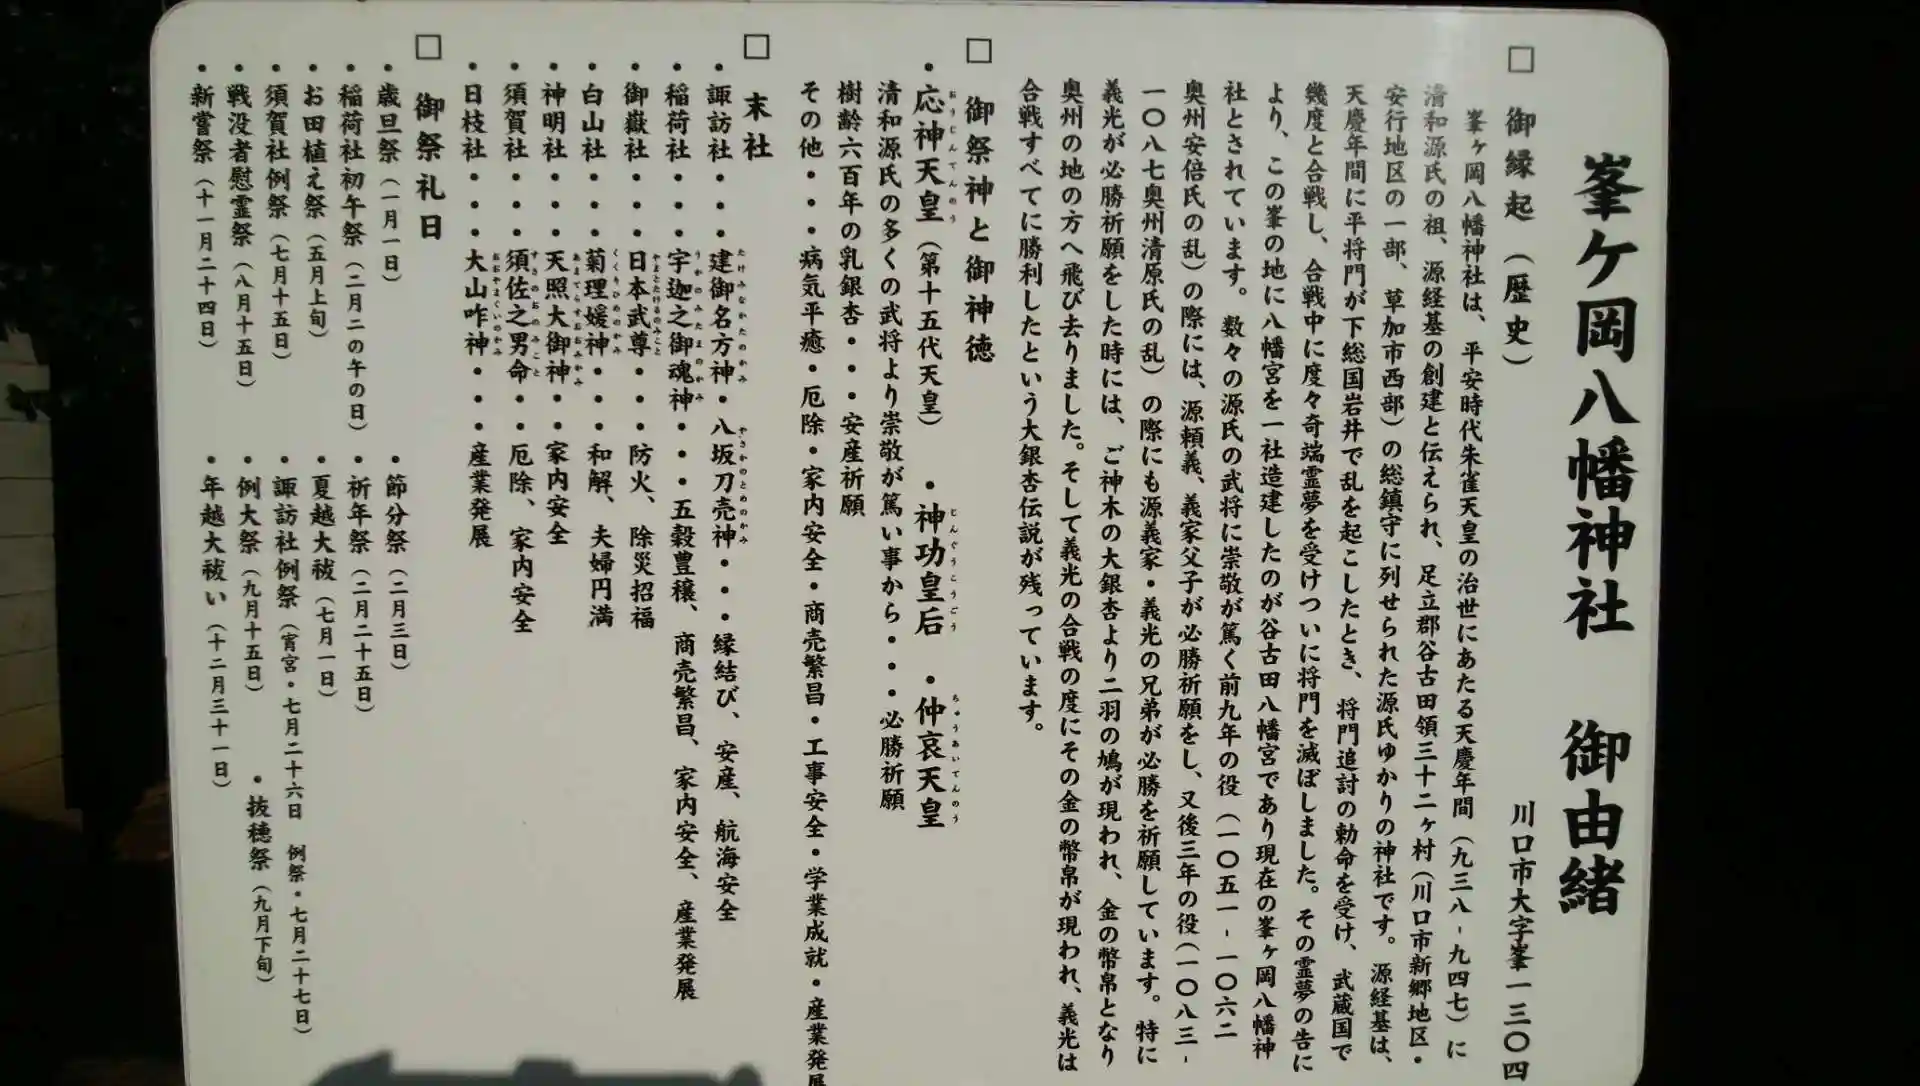 峯ケ岡八幡神社　御由緒
川口市大字峯一三〇四
□ 御縁起（歴史）
峯ヶ岡八幡神社は、平安時代朱雀天皇の治世にあたる天慶年間（九三八-九四七）に
清和源氏の祖、源経基の創建と伝えられ、足立郡谷古田領三十二ヶ村（川口市新郷地区・
安行地区の一部、草加市西部）の総鎮守に列せられた源氏ゆかりの神社です。源経基は、
天慶年間に平将門が下総国岩井で乱を起こしたとき、将門追討の勅命を受け、武蔵国で
幾度と合戦し、合戦中に度々奇端霊夢を受けついに将門を滅ぼしました。その霊夢の告に
より、この峯の地に八幡宮を一社造建したのが谷古田八幡宮であり現在の峯ヶ岡八幡神
社とされています。数々の源氏の武将に崇敬が篤く前九年の役（一〇五一-一〇六二
奥州安倍氏の乱）の際には、源頼義、義家父子が必勝祈願をし、又後三年の役（一〇八三-
一〇八七奥州清原氏の乱）の際にも源義家・義光の兄弟が必勝を祈願しています。特に
義光が必勝祈願をした時には、ご神木の大銀杏より二羽の鳩が現われ、金の幣帛となり
奥州の地の方へ飛び去りました。そして義光の合戦の度にその金の幣帛が現われ、義光は
合戦すべてに勝利したという大銀杏伝説が残っています。
□ 御祭神と御神徳
・応神天皇（第十五代天皇）・神功皇后・仲哀天皇
おうじんてんのう　じんぐうこうごう　ちゅうあいてんのう
清和源氏の多くの武将より崇敬が篤い事から・・・必勝祈願
樹齢六百年の乳銀杏・・・安産祈願
その他・・・病気平癒・厄除・家内安全・商売繁昌・工事安全・学業成就・産業発展
□ 末社
・諏訪社・・・建御名方神・八坂刀売神・・・縁結び、安産、航海安全
たけみなかたのかみ　やさかのとめのかみ
・稲荷社・・・宇迦之御魂神・・・五穀豊穣、商売繁昌、家内安全、産業発展
うかのみたまのかみ
・御嶽社・・・日本武尊・・・防火、除災招福
やまとたけるのみこと
・白山社・・・菊理媛神・・・和解、夫婦円満
くくりひめのかみ
・神明社・・・天照大御神・・・家内安全
あまてらすおおみかみ
・須賀社・・・須佐之男命・・・厄除、家内安全
すさのおのみこと
・日枝社・・・大山咋神・・・産業発展
おおやまぐいのかみ
□ 御祭礼日
・歳旦祭（一月一日）　・節分祭（二月三日）
・稲荷社初午祭（二月二の午の日）　・祈年祭（二月二十五日）
・お田植え祭（五月上旬）　・夏越大祓（七月一日）
・須賀社例祭（七月十五日）　・諏訪社例祭（宵宮・七月二十六日　例祭・七月二十七日）
・戦没者慰霊祭（八月十五日）　・例大祭（九月十五日）　・抜穂祭（九月下旬）
・新嘗祭（十一月二十四日）　・年越大祓い（十二月三十一日）